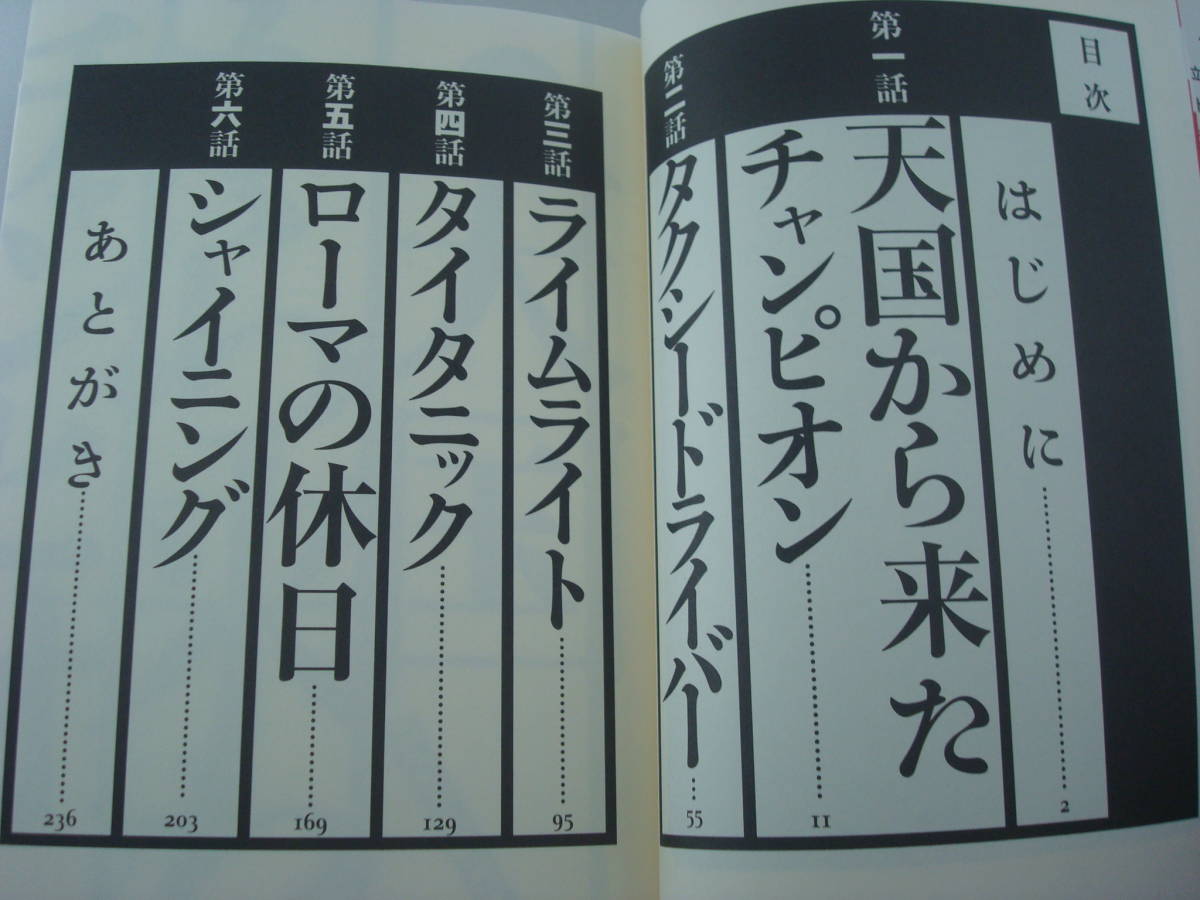 目次
はじめに……2
第一話
天国から来た
チャンピオン……11
第二話
タクシードライバー…55
第三話
ライムライト……95
第四話
タイタニック……129
第五話
ローマの休日……169
第六話
シャイニング……203
あとがき……236